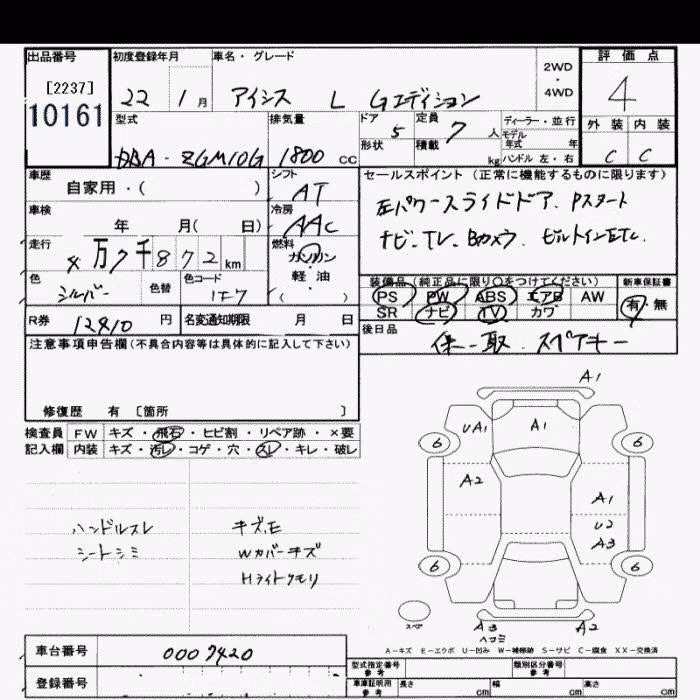 出品番号 初度登録年月 車名・グレード 2WD・4WD 評価点
[2237]
10161 22 1月 アイシス L Gエディション 4
型式 排気量 ドア 5 定員 7人 ディーラー・並行
モデル年式 年
外装 内装
DBA-ZGM10G 1800cc 形状 積載 kg ハンドル 左・右 C C
車歴 シフト セールスポイント(正常に機能するものに限ります)
自家用・( ) AT
左パワースライドドア. Pスタート
車検 冷房
年 月( 日) AAC
ナビ. TV. Bカメラ. ビルトインETC.
走行 4万7千872km 燃料 ガソリン
軽・油
( )
装備品(純正品に限り○をつけてください) 新車保証書
色 シルバー 色替 色コード 1E7
PS PW ABS エアB AW 有・無
SR ナビ TV カワ
R券 12410円 名変通知期限 月 日
後日品 保ー取. スペアキー
注意事項申告欄(不具合内容等は具体的に記入して下さい)
修復歴 有〔箇所 〕
検査員 FW キズ・飛石・ヒビ割・リペア跡・×要
記入欄 内装 キズ・汚レ・コゲ・穴・スレ・キレ・破レ
ハンドルスレ キズ.E
シートシミ Wカバーキズ
Hライトクモリ
A1
UA1 A1
6 6
A2
A1
U2
A3
6 6
スペア A3 A2
ヘコミ
A-キズ E-エクボ U-凹み W-補修跡 S-サビ C-腐食 XX-交換済
車台番号 0007420
型式指定番号 参考 類別区分番号 参考
登録番号 車庫証明用 参考 長さ cm 幅 cm 高さ cm